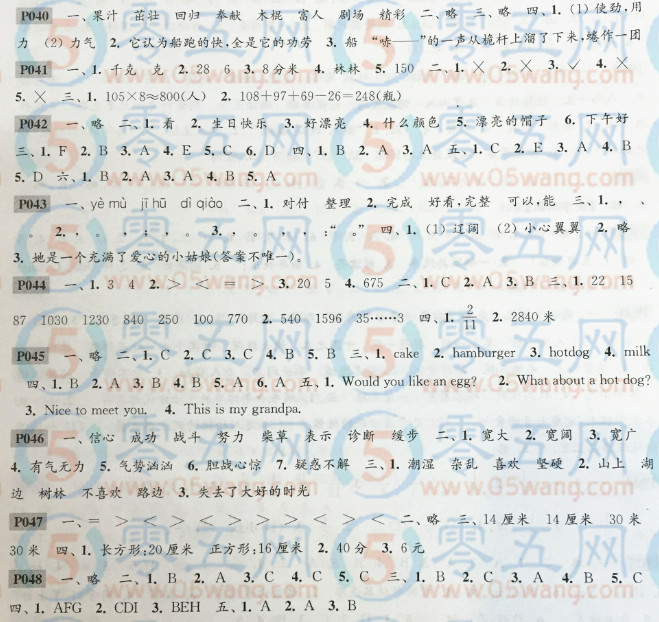 P040 一、果汁 茁壮 回归 奉献 木棍 富人 剧场 精彩 二、略 三、略 四、1.（1）使劲,用
力 （2）力气 2. 它认为船跑的快,全是它的功劳 3. 船 “哧——”的一声从桅杆上溜了下来,蜷作一团
P041 一、1. 千克 克 2. 28 6 3. 8 分米 4. 林林 5. 150 二、1. × 2. × 3. √ 4. ×
5. × 三、1. 105×8≈800(人) 2. 108+97+69-26=248(瓶)
P042 一、略 二、1. 看 2. 生日快乐 3. 好漂亮 4. 什么颜色 5. 漂亮的帽子 6. 下午好
三、1. F 2. B 3. A 4. E 5. C 6. D 四、1. B 2. A 3. A 五、1. C 2. E 3. A 4. B
5. D 六、1. B 2. A 3. A 4. B 5. A
P043 一、yè mù jī hū dì qiào 二、1. 对付 整理 2. 完成 好看,完整 可以,能 三、1. ， 、
。 2. ， 。 ， ； ， 。 3. ， 。 ， ， ：“ 。” 四、1.（1）辽阔 （2）小心翼翼 2. 略
3. 她是一个充满了爱心的小姑娘(答案不唯一)。
P044 一、1. 3 4 2. > < = > 3. 20 5 4. 675 二、1. C 2. A 3. B 三、1. 22 15
87 1030 1230 840 250 100 770 2. 540 1596 35……3 四、1. 2/11 2. 2840 米
P045 一、略 二、1. C 2. C 3. C 4. B 5. B 三、1. cake 2. hamburger 3. hotdog 4. milk
四、1. B 2. A 3. B 4. B 5. A 6. A 五、1. Would you like an egg? 2. What about a hot dog?
3. Nice to meet you. 4. This is my grandpa.
P046 一、信心 成功 战斗 努力 柴草 表示 诊断 缓步 二、1. 宽大 2. 宽阔 3. 宽广
4. 有气无力 5. 气势汹汹 6. 胆战心惊 7. 疑惑不解 三、1. 潮湿 杂乱 喜欢 坚硬 2. 山上 湖
边 树林 不喜欢 路边 3. 失去了大好的时光
P047 一、= > < > < > > > < > < 二、略 三、14 厘米 14 厘米 30 米
30 米 四、1. 长方形:20 厘米 正方形:16 厘米 2. 40 分 3. 6 元
P048 一、略 二、1. B 2. A 3. C 4. C 5. C 三、1. B 2. C 3. A 4. B 5. C
四、1. AFG 2. CDI 3. BEH 五、1. A 2. A 3. B